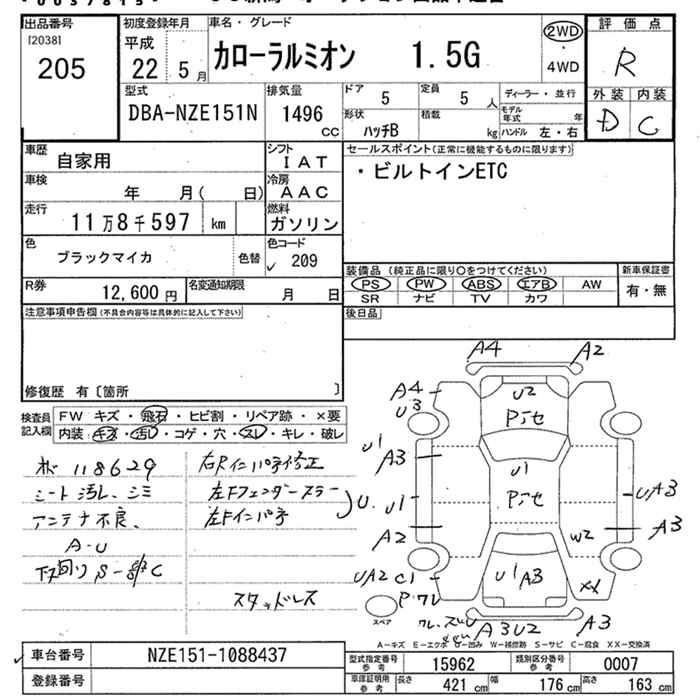 出品番号 初度登録年月 車名・グレード 評価点
[2038] 平成 カローラルミオン 1.5G 2WD
205 22年 5月 ・ 4WD R
型式 排気量 ドア 5 定員 5人 ディーラー・並行 外装 内装
DBA-NZE151N 1496cc 形状 ハッチB 積載 kg モデル年式 年 D C
ハンドル 左・右
車歴 自家用 シフト IAT セールスポイント(正常に機能するものに限ります)
車検 年 月( 日) 冷房 AAC ・ビルトインETC
走行 11万8千597 km 燃料 ガソリン
色 ブラックマイカ 色替 色コード 209
装備品 (純正品に限り○をつけてください) 新車保証書
R券 12,600円 名変通知期限 月 日 PS PW ABS エアB AW 有・無
SR ナビ TV カワ
注意事項申告欄(不具合内容等は具体的に記入して下さい) 後日品
修復歴 有〔箇所 〕
検査員記入欄 FW キズ・飛石・ヒビ割・リペア跡・×要
内装 キズ・汚レ・コゲ・穴・スレ・キレ・破レ
118629 右Rインパネ修正
シート汚レ、シミ 左Fフェンダースラー
アンテナ不良、 左Fインパネ
A-U
下回りS-C
スタッドレス
A4 A2
A4 U2
U3 Pシセ
U1
A3 U1
U. U1 Pシセ UA3
A2 W2 A3
UA2 C1 U1 A3 XX
P・ワレ
スペア A3U2 A3
A-キズ E-エクボ U-凹み W-補修跡 S-サビ C-腐食 XX-交換済
車台番号 NZE151-1088437 型式指定番号 参考 15962 類別区分番号 参考 0007
登録番号 車庫証明用 参考 長さ 421cm 幅 176cm 高さ 163cm